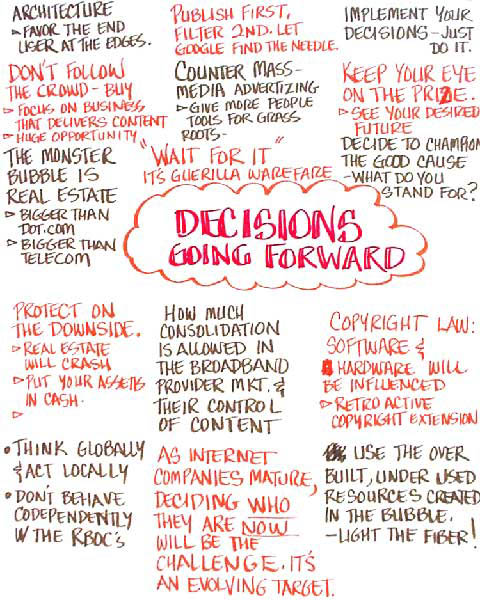 ARCHITECTURE
▹ FAVOR THE END
USER AT THE EDGES.
PUBLISH FIRST,
FILTER 2ND. LET
GOOGLE FIND THE NEEDLE.
IMPLEMENT YOUR
DECISIONS - JUST
DO IT.
DON'T FOLLOW
THE CROWD - BUY
▹ FOCUS ON BUSINESS
THAT DELIVERS CONTENT
▹ HUGE OPPORTUNITY
COUNTER MASS-
MEDIA ADVERTIZING
▹ GIVE MORE PEOPLE
TOOLS FOR GRASS
ROOTS-
KEEP YOUR EYE
ON THE PRIZE.
▹ SEE YOUR DESIRED
FUTURE
THE MONSTER
BUBBLE IS
REAL ESTATE
▹ BIGGER THAN
DOT.COM
▹ BIGGER THAN
TELECOM
"WAIT FOR IT"
IT'S GUERILLA WAREFARE
DECIDE TO CHAMPION
THE GOOD CAUSE
-WHAT DO YOU
STAND FOR?
DECISIONS
GOING FORWARD
PROTECT ON
THE DOWNSIDE.
▹ REAL ESTATE
WILL CRASH
▹ PUT YOUR ASSETS
IN CASH.
▹
HOW MUCH
CONSOLIDATION
IS ALLOWED IN
THE BROADBAND
PROVIDER MKT. &
THEIR CONTROL
OF CONTENT
COPYRIGHT LAW:
SOFTWARE &
HARDWARE WILL
BE INFLUENCED
▹ RETRO ACTIVE
COPYRIGHT EXTENSION
• THINK GLOBALLY
& ACT LOCALLY
• DON'T BEHAVE
CODEPENDENTLY
W THE RBOC'S
AS INTERNET
COMPANIES MATURE,
DECIDING WHO
THEY ARE NOW
WILL BE THE
CHALLENGE. IT'S
AN EVOLVING TARGET.
USE THE OVER
BUILT, UNDER USED
RESOURCES CREATED
IN THE BUBBLE.
-LIGHT THE FIBER!